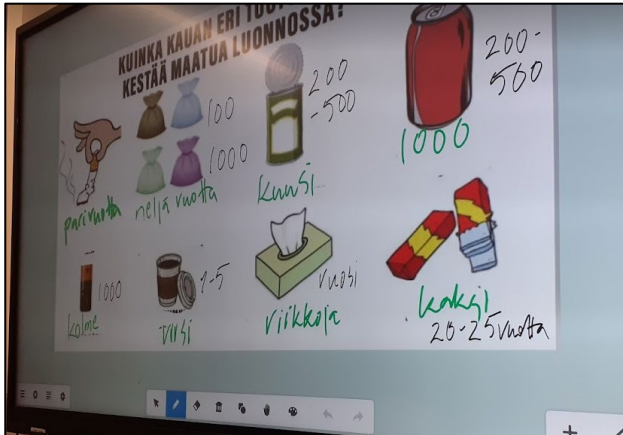 KUINKA KAUAN ERI
KESTÄÄ MAATUA LUONNOSSA?
100
1000
200
-500
200-
500
parivuotta
neljä vuotta
kuusi
1000
1000
1-5
vuosi
kolme
viisi
viikkoja
kaksi
20-25 vuotta